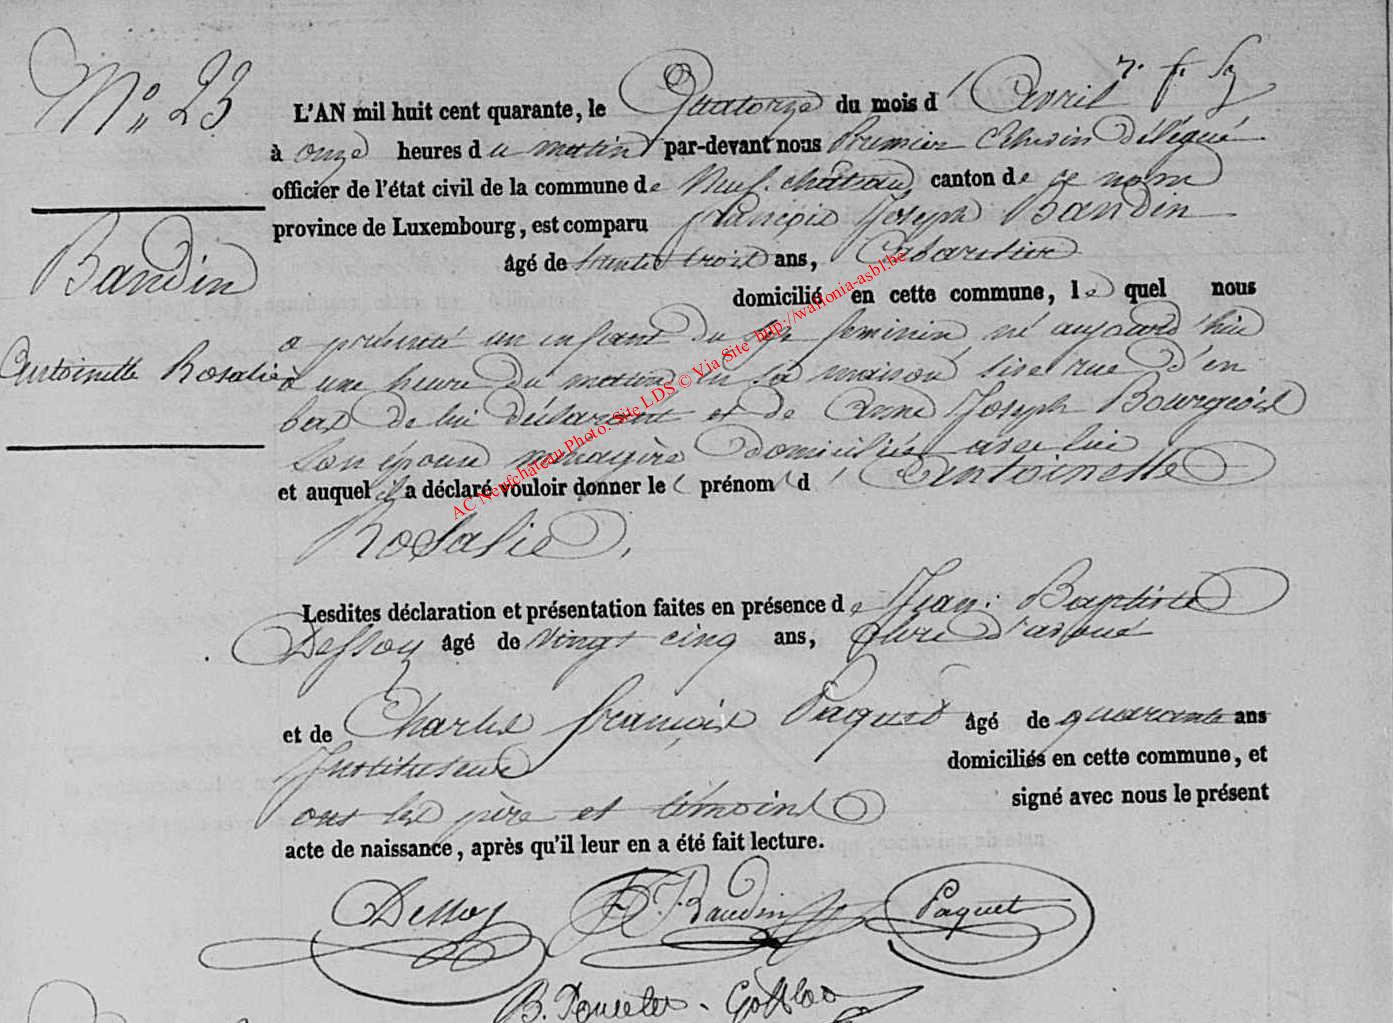 N° 23
L'AN mil huit cent quarante, le Quatorze du mois d'Avril
à onze heures du matin par-devant nous Premier Echevin Délégué
officier de l'état civil de la commune de Neuf-château, canton de ce nom
province de Luxembourg, est comparu François Joseph Baudin
âgé de trente trois ans, Cabaretier
domicilié en cette commune, lequel nous
a présenté un enfant du sexe feminin né aujourd'hui
à une heure du matin en sa maison sise rue d'en
bas de lui déclarant et de Anne Joseph Bourgeois
son épouse menagère domiciliée avec lui
et auquel il a déclaré vouloir donner le prénom d'Antoinette
Rosalie.
Baudin
Antoinette Rosalie
Lesdites déclaration et présentation faites en présence de Jean-Baptiste
Dessoy âgé de vingt cinq ans, Clerc d'avoué
et de Charles françois Paquet âgé de quarante ans
Instituteur domiciliés en cette commune, et
ont les père et témoins signé avec nous le présent
acte de naissance, après qu'il leur en a été fait lecture.
Dessoy F J Baudin Paquet
AC Neufchateau Photo: Site LDS © Via Site http://wallonia-asbl.be